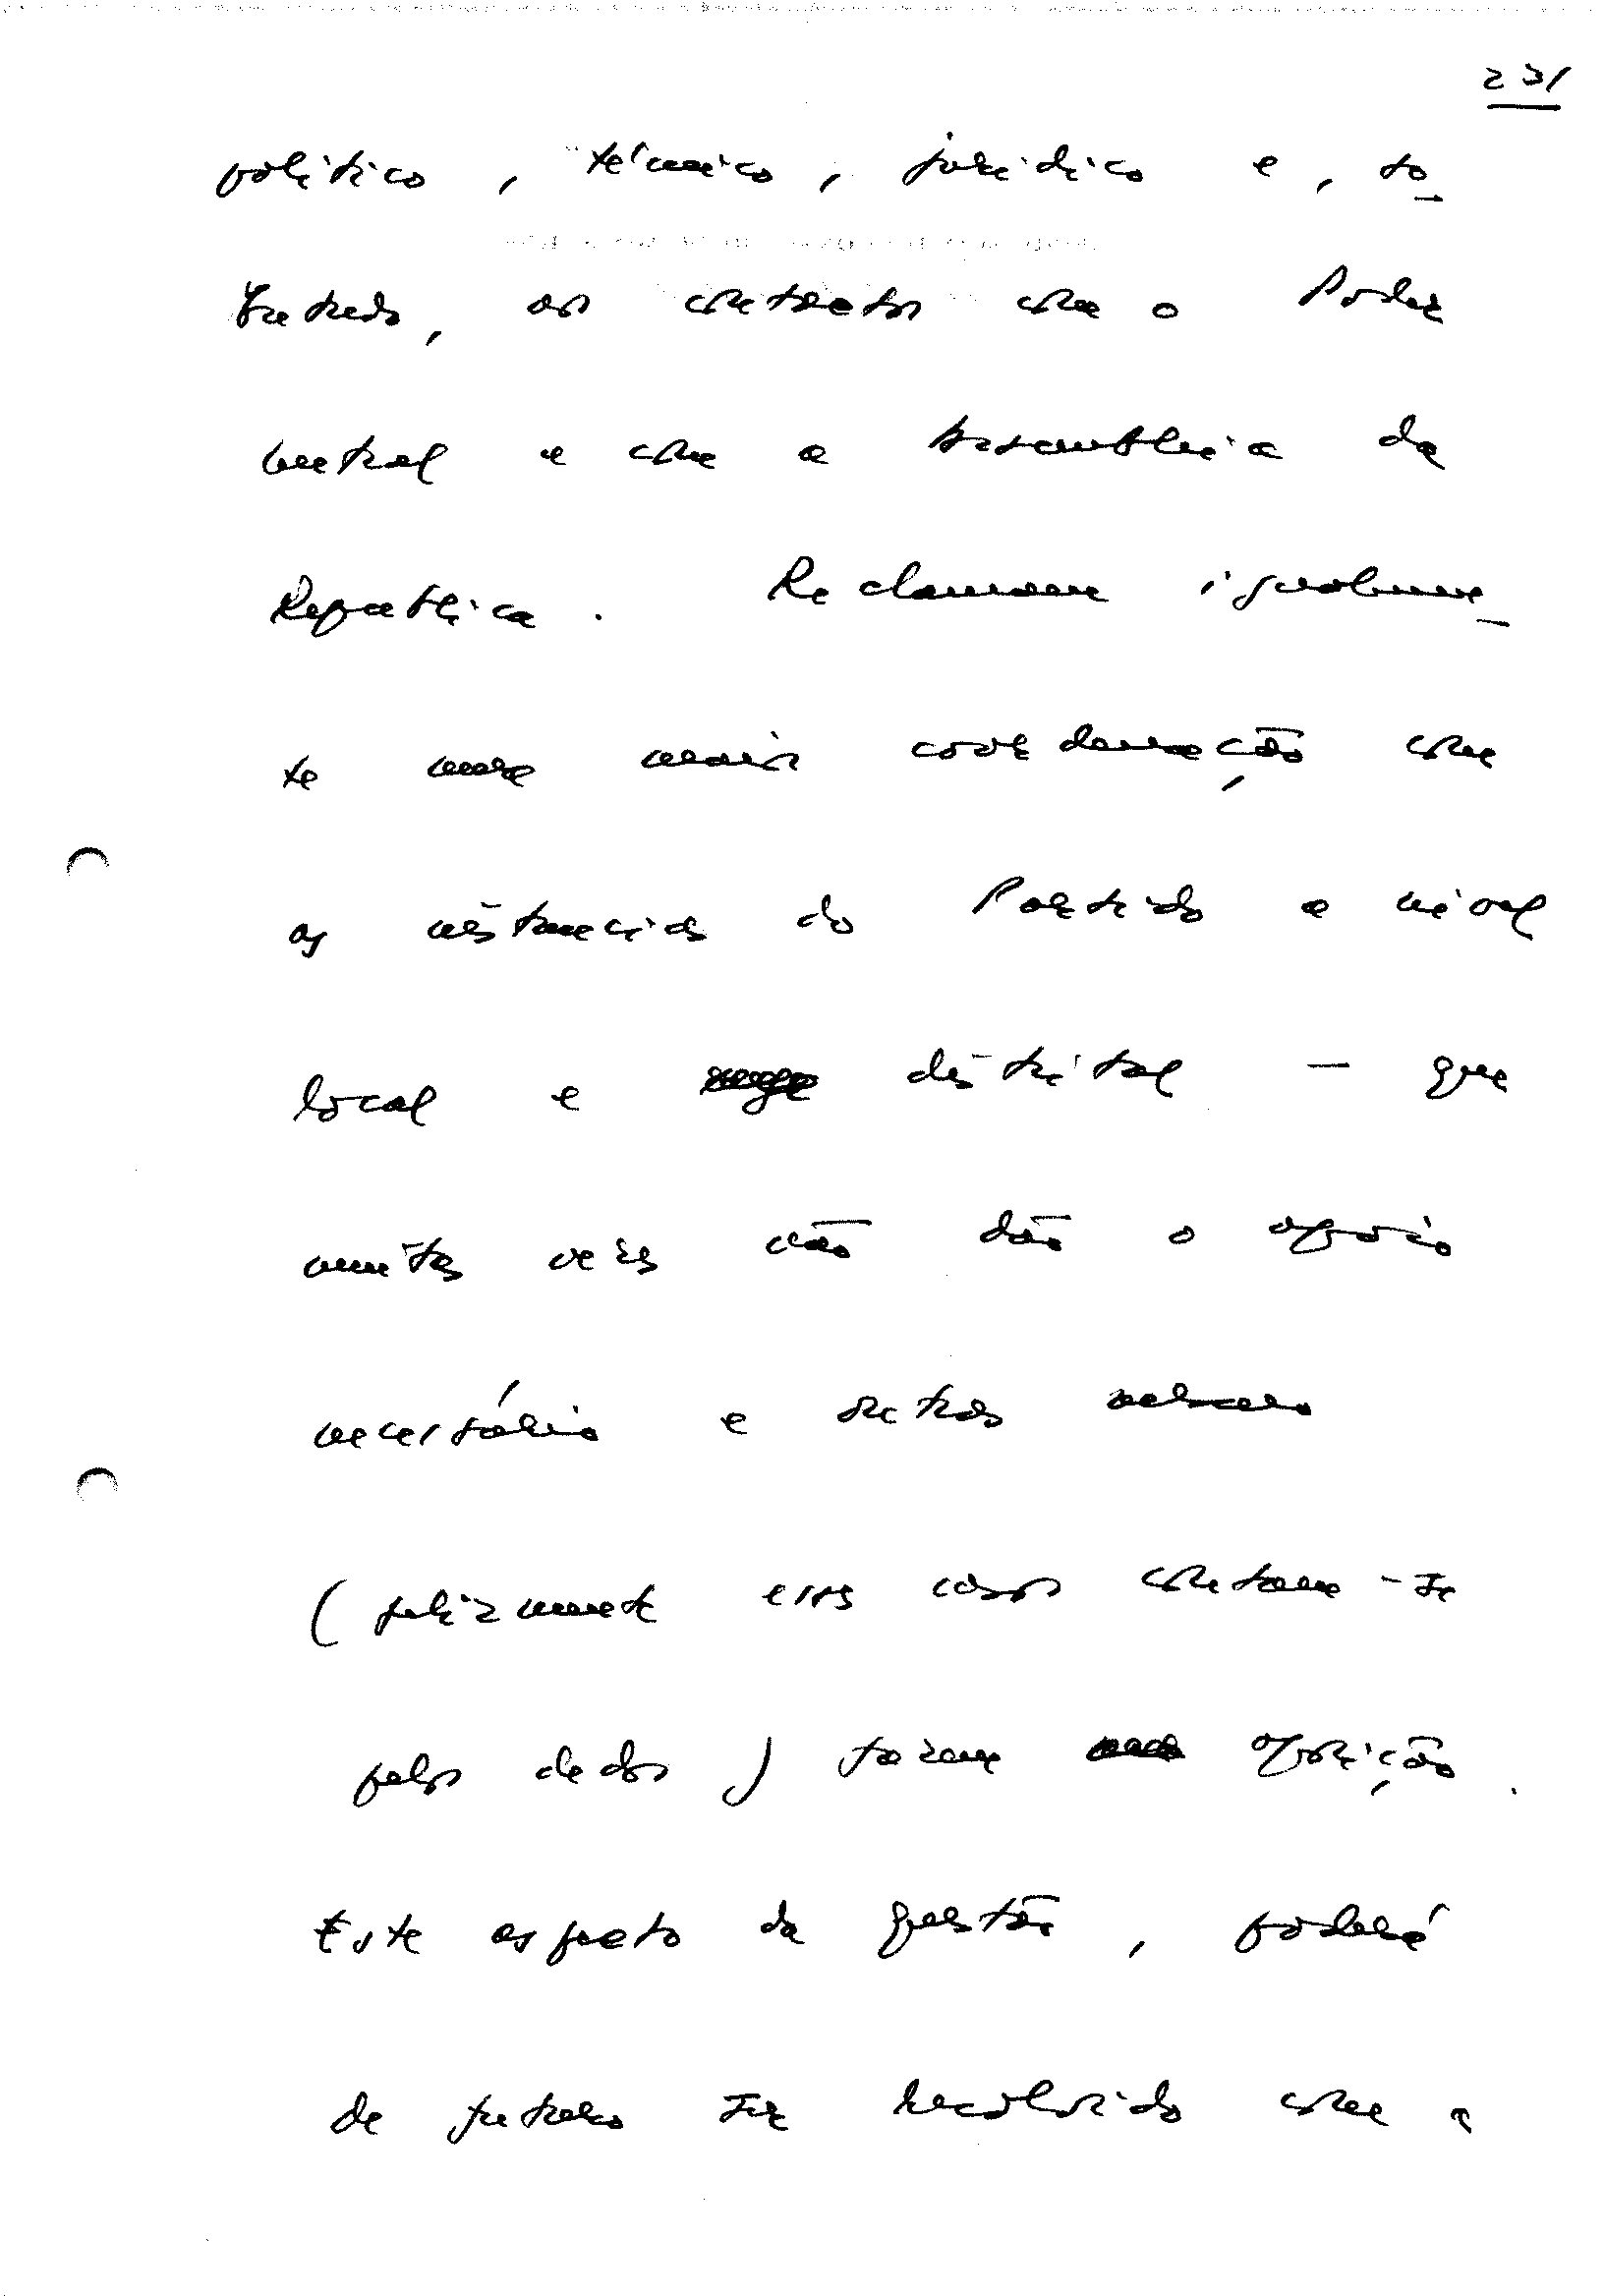 231
político, técnico, jurídico e, so-
bretudo, os contactos com o Poder
central e com a Assembleia da
República. Reclamam igualmen-
te uma maior coordenação com
as instancias do Partido a nivel
local e distrital - que
muitas vezes não dão o apoio
necessário e outras
(felizmente esses casos contam-se
pelos dedos) fazem oposição.
Este aspecto da questão, poderá
de futuro ser resolvido com a